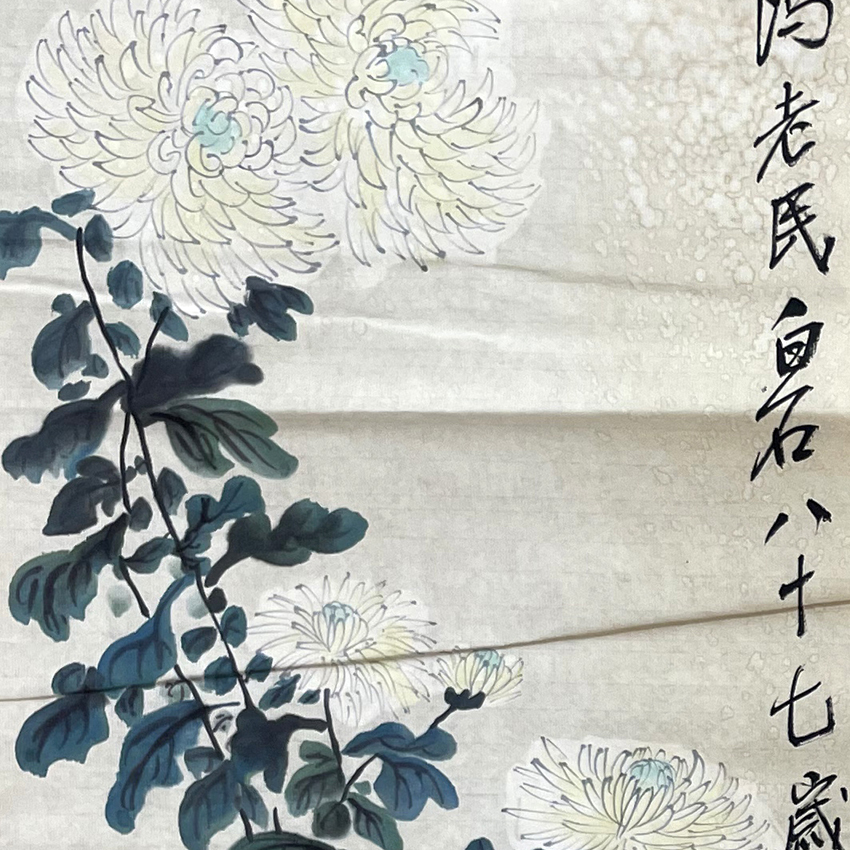 老民白石八十七歲